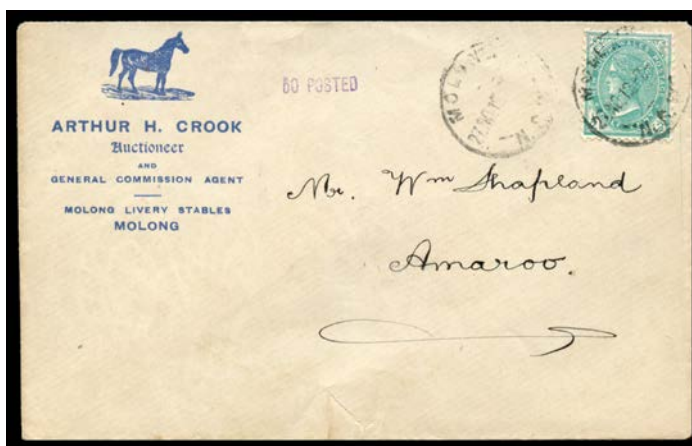 ARTHUR H. CROOK
Auctioneer
AND
GENERAL COMMISSION AGENT
MOLONG LIVERY STABLES
MOLONG
60 POSTED
MOLONG
N.S.W
Mr. Wm Shapland
Amaroo.